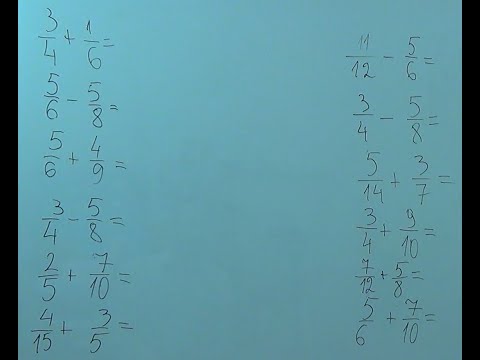 3/4 + 1/6 =
5/6 - 5/8 =
5/6 + 4/9 =
3/4 - 5/8 =
2/5 + 7/10 =
4/15 + 3/5 =
11/12 - 5/6 =
3/4 - 5/8 =
5/14 + 3/7 =
3/4 + 9/10 =
7/12 + 5/8 =
5/6 + 7/10 =